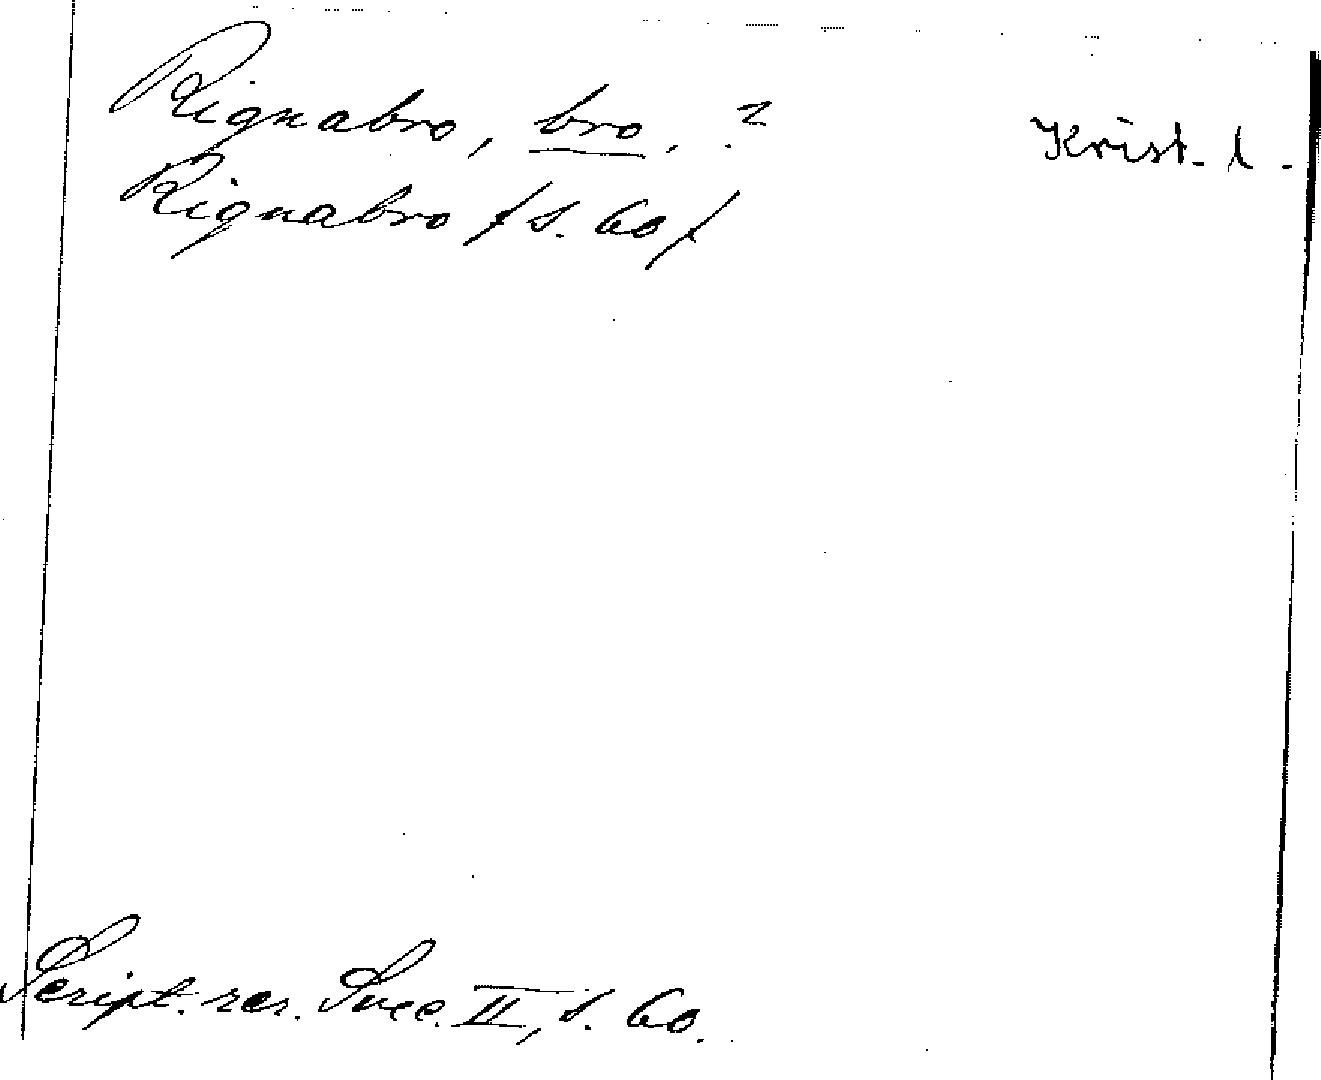 Rignabro, bro, ?
Krist. l.
Rignabro / s. 60 /
Script. rer. Svec. II, s. 60.